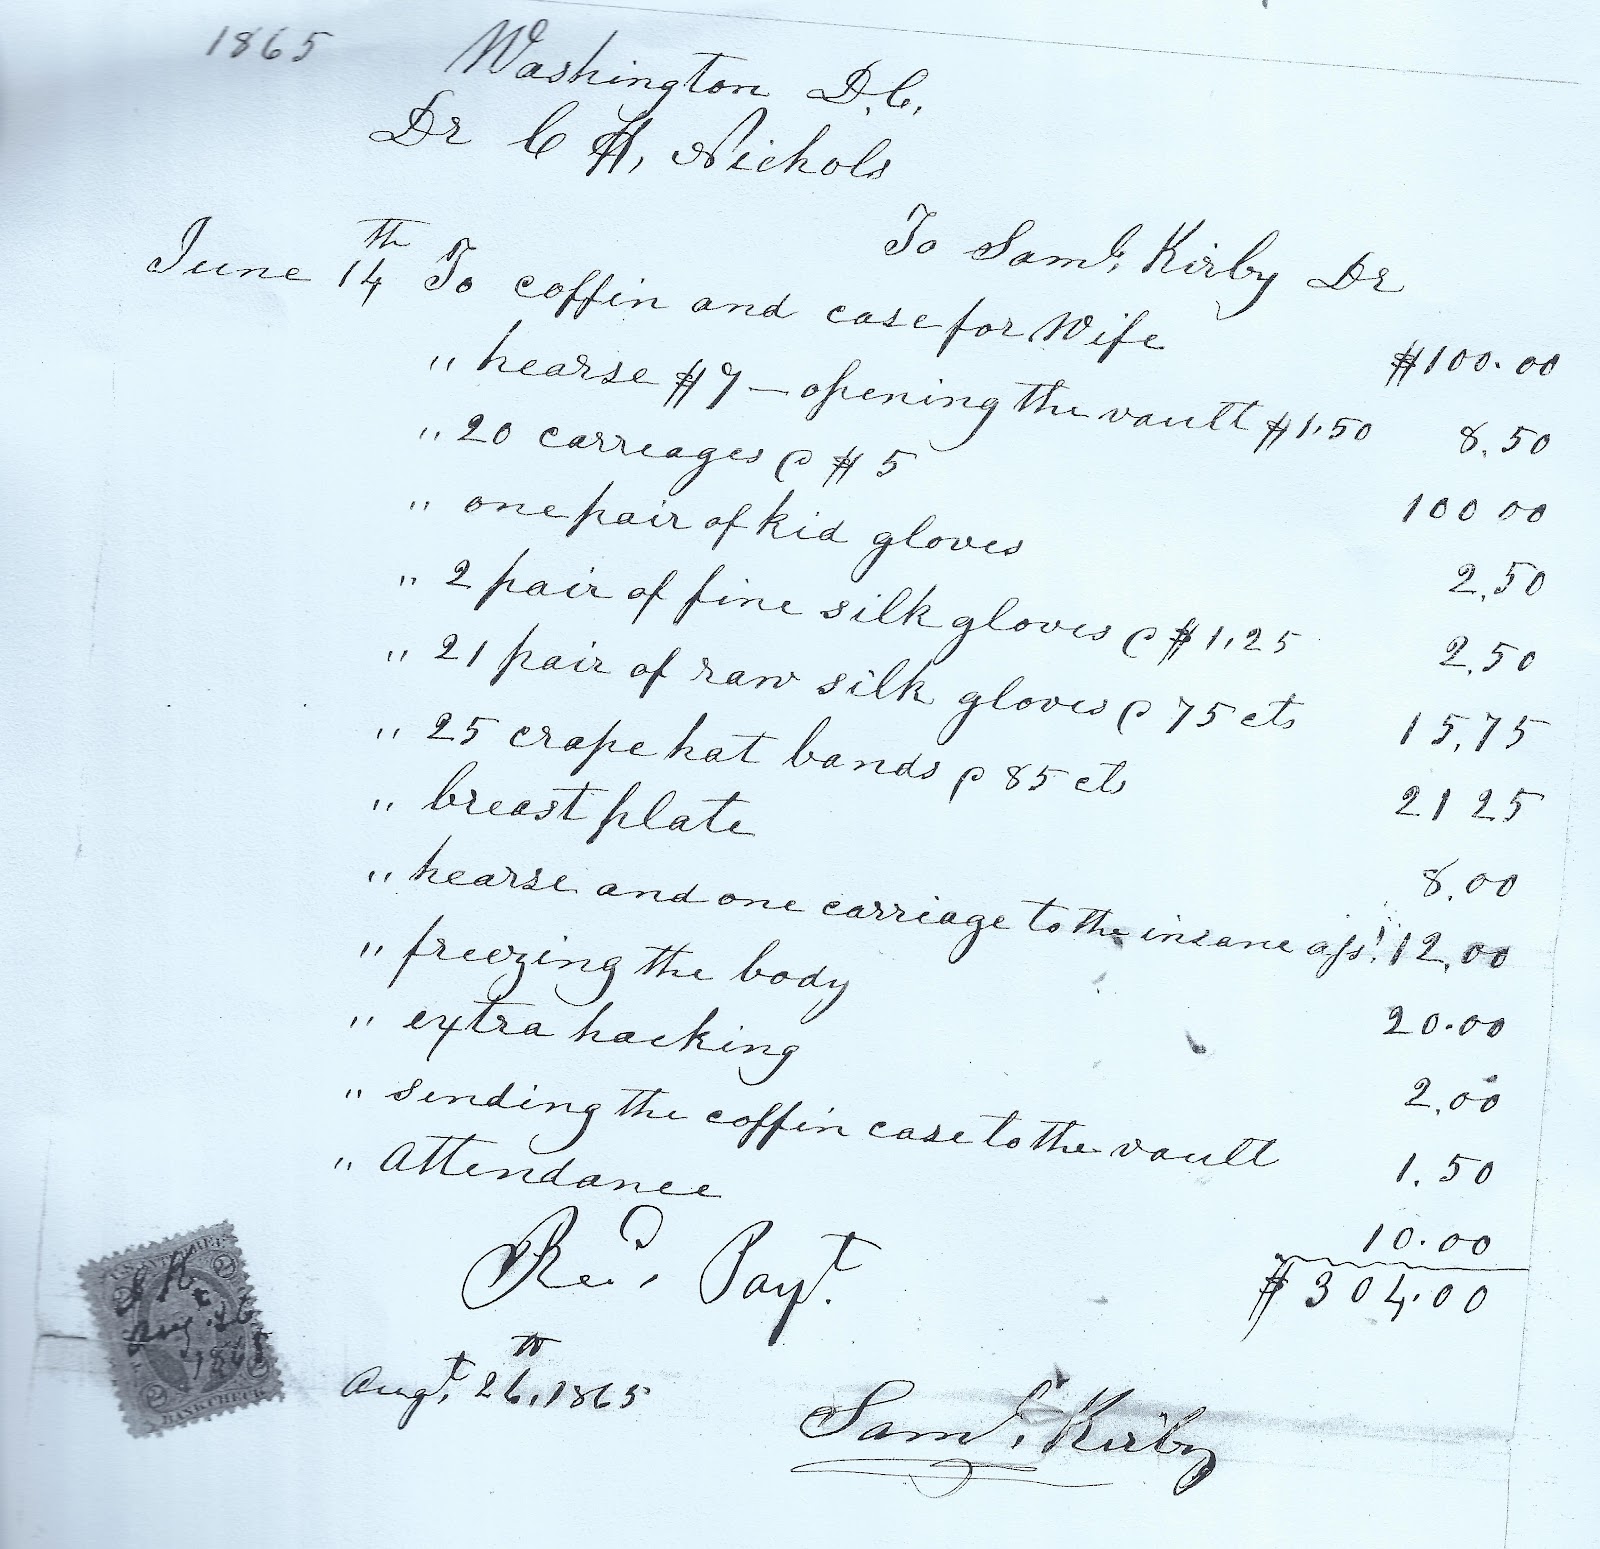 1865 Washington D.C.
Dr C H, Nichols
To Saml. Kirby Dr
June 14th To coffin and case for Wife $100.00
" hearse $7 – opening the vault $1.50 8.50
" 20 carreages @ $5 100 00
" one pair of kid gloves 2.50
" 2 pair of fine silk gloves @ $1.25 2.50
" 21 pair of raw silk gloves @ 75 cts 15.75
" 25 crape hat bands @ 85 cts 21 25
" breast plate 8.00
" hearse and one carriage to the insane 12.00
" freezing the body 20.00
" extra hacking 2.00
" sending the coffin case to the vault 1.50
" Attendance 10.00
$304.00
Recd. Payt.
Augt. 26th, 1865
Saml. Kirby
S K
Aug. 26
1865
BANK CHECK